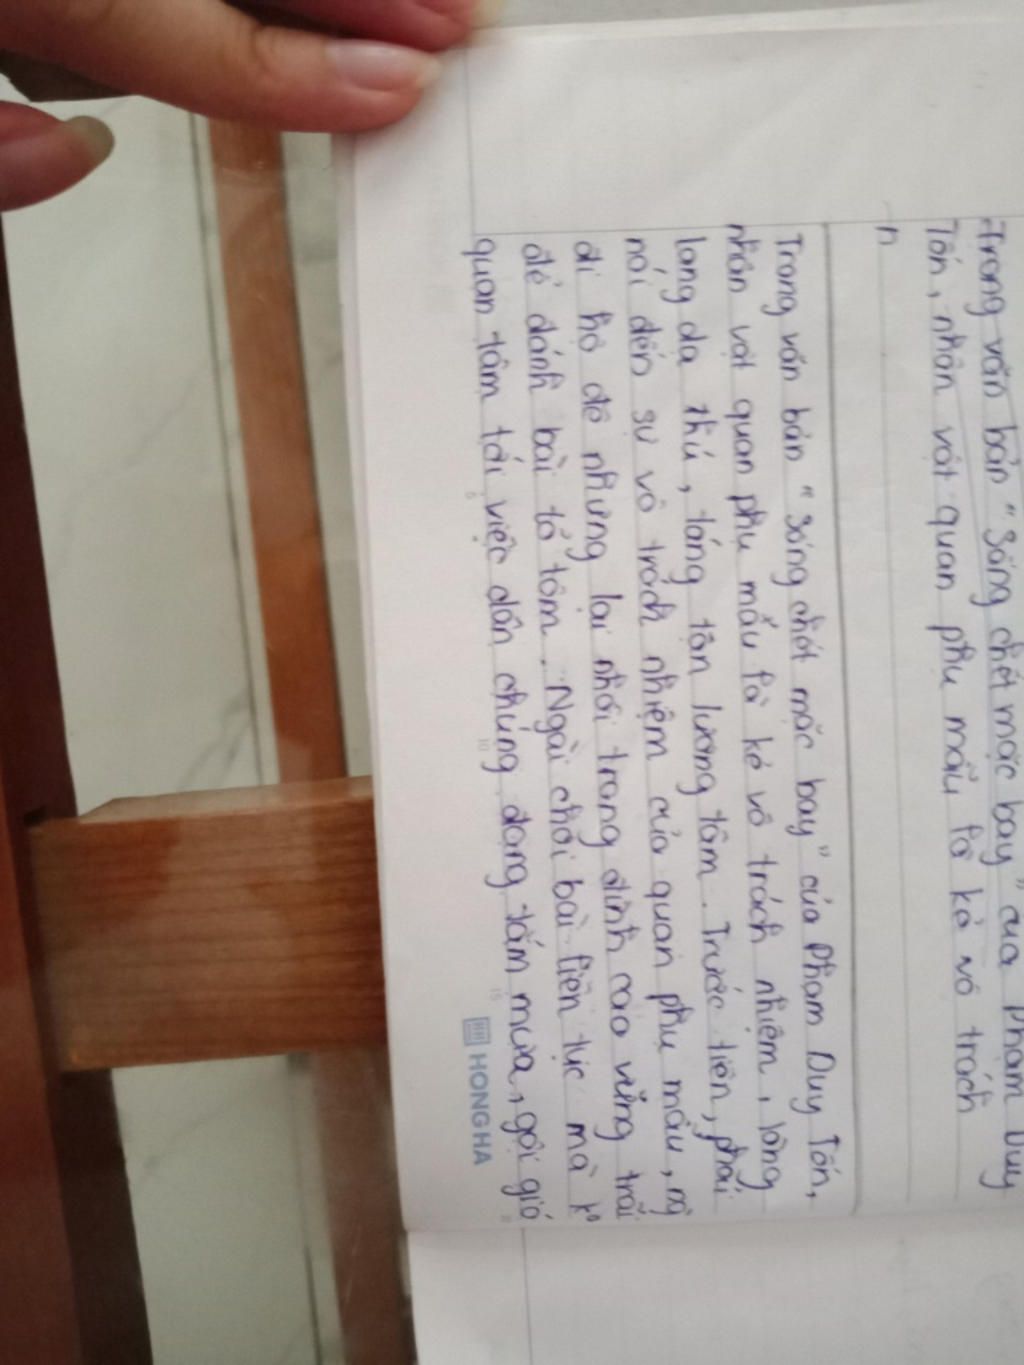 -Trong văn bản "Sống chết mặc bay" của Phạm Duy
Tốn, nhân vật quan phụ mẫu là kẻ vô trách
n
Trong văn bản "Sống chết mặc bay" của Phạm Duy Tốn,
nhân vật quan phụ mẫu là kẻ vô trách nhiệm, lòng
lang dạ thú, táng tận lương tâm. Trước tiên, phải
nói đến sự vô trách nhiệm của quan phụ mẫu,
đi hộ đê nhưng lại nhởi trong đình cao vững trãi
để đánh bài tổ tôm. Ngài chơi bài liên tục mà ko
quan tâm tới việc dân chúng đang tắm mưa, gội gió
5
10
15
HONG HA